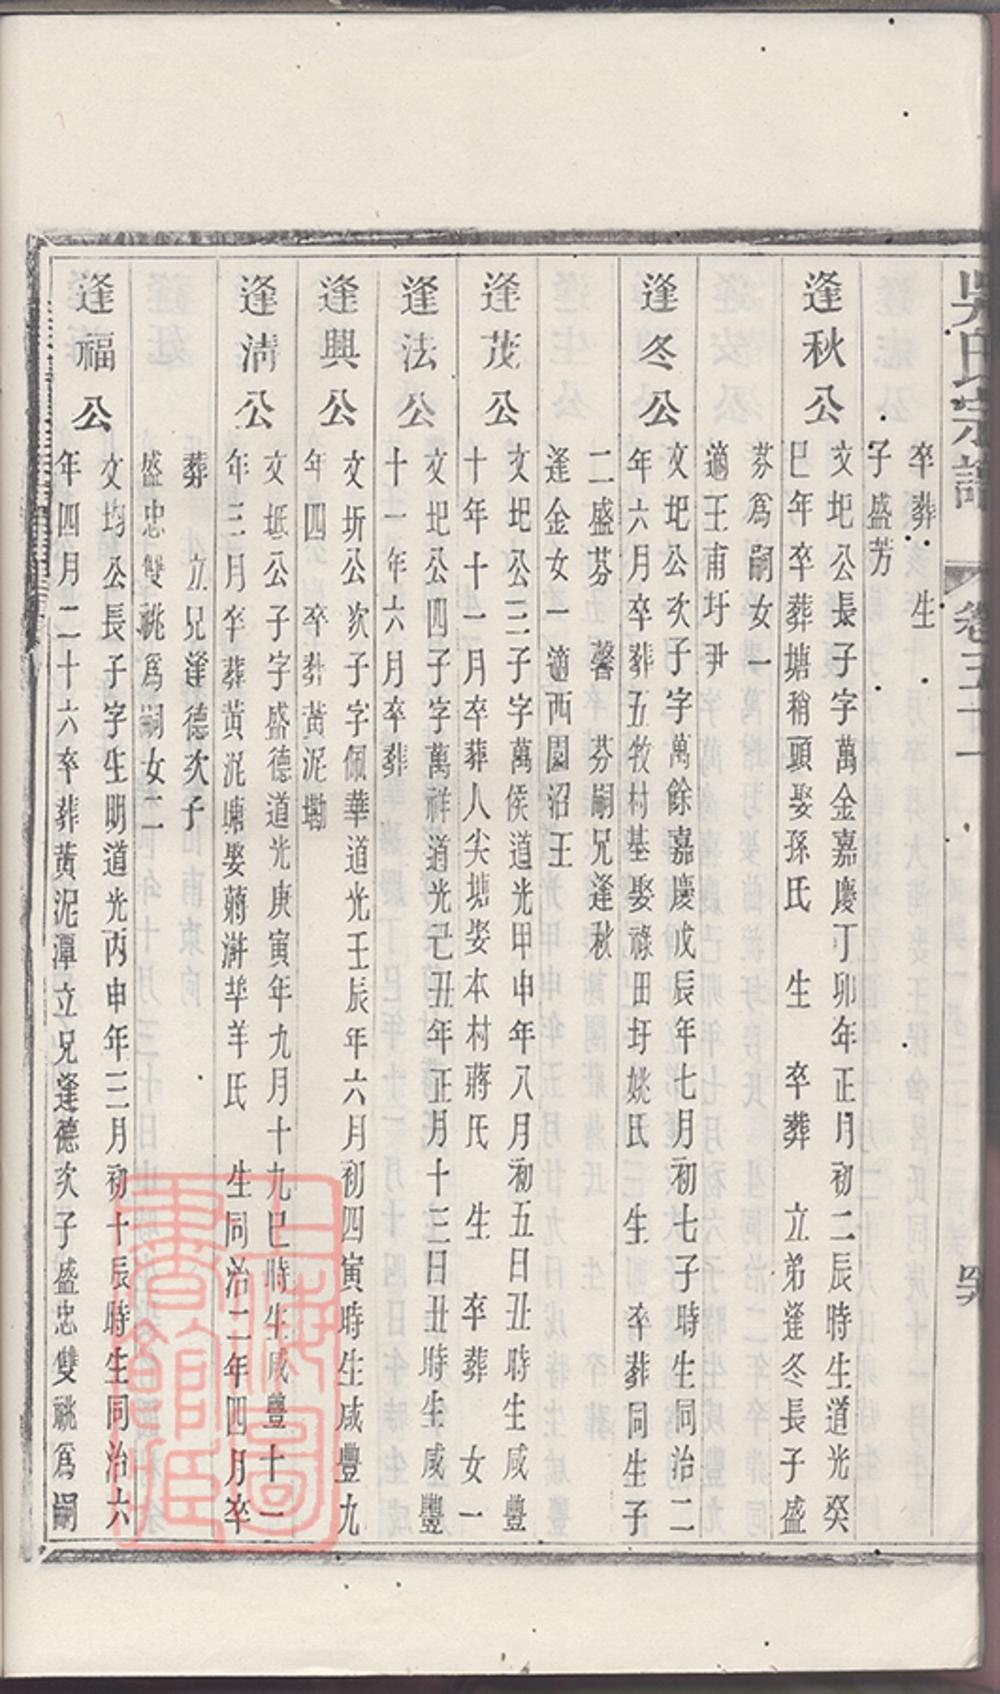 吳氏宗譜　卷五十一
卒葬　生
子盛芳
逢秋公
文圯公長子字萬金嘉慶丁卯年正月初二辰時生道光癸
巳年卒葬塘稍頭娶孫氏　生　卒葬　立弟逢冬長子盛
芬爲嗣女一
適王甫圩尹
逢冬公
文圯公次子字萬餘嘉慶戊辰年七月初七子時生同治二
年六月卒葬五牧村基娶祿田圩姚氏　生　卒葬同生子
二盛芬　馨　芬嗣兄逢秋
逢金女一適西園沼王
逢茂公
文圯公三子字萬侯道光甲申年八月初五日丑時生咸豐
十年十一月卒葬人尖塘娶本村蔣氏　生　卒葬　女一
逢法公
文圯公四子字萬祥道光己丑年正月十三日丑時生咸豐
十一年六月卒葬
逢興公
文圻公次子字佩華道光壬辰年六月初四寅時生咸豐九
年四　卒葬黃泥墩
逢清公
文坻公子字盛德道光庚寅年九月十九巳時生咸豐十一
年三月卒葬黃泥塘娶蔣滸羊氏　生同治二年四月卒
葬　立兄逢德次子
盛忠雙祧爲嗣女二
逢福公
文均公長子字生明道光丙申年三月初十辰時生同治六
年四月二十六卒葬黃泥潭立兄逢德次子盛忠雙祧爲嗣